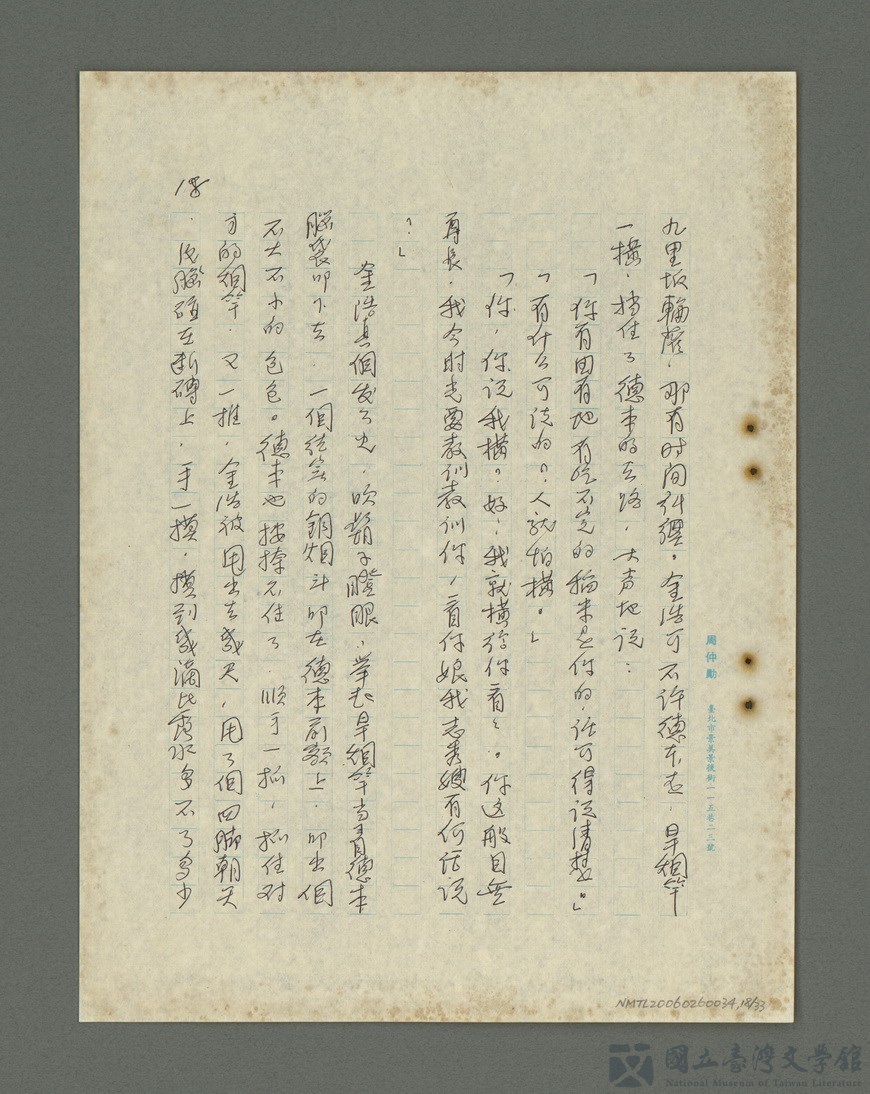 周仲勳 臺北市景美景後街一一五巷二二號
九里坂輪廕，那有时间糾纒。金浩可不许德本走，旱烟竿
一横，挡住了德本的去路，大声地说：
「你有田有地有吃不完的稻米是你的，话可得说清楚。」
「有什么可说的？人就怕横。」
「你，你说我横？好，我就横给你看看。你这般目無
尊長，我今时先要教训教训你，看你娘我志秀嫂有何话说
？」
金浩真個发了火，吹鬍子瞪眼，举起旱烟竿当着德本
腦袋叩下去，一個结实的銅烟斗叩在德本前额上，叩出個
不大不小的包包。德本也按捺不住了，順手一抓，抓住对
方的烟竿，又一推，金浩被甩出去幾尺，甩了個四脚朝天
，後腦碰在断磚上，手一摸，摸到幾滴比露水多不了多少
18
NMTL20060260034,18/33
國立臺灣文學館
National Museum of Taiwan Literature